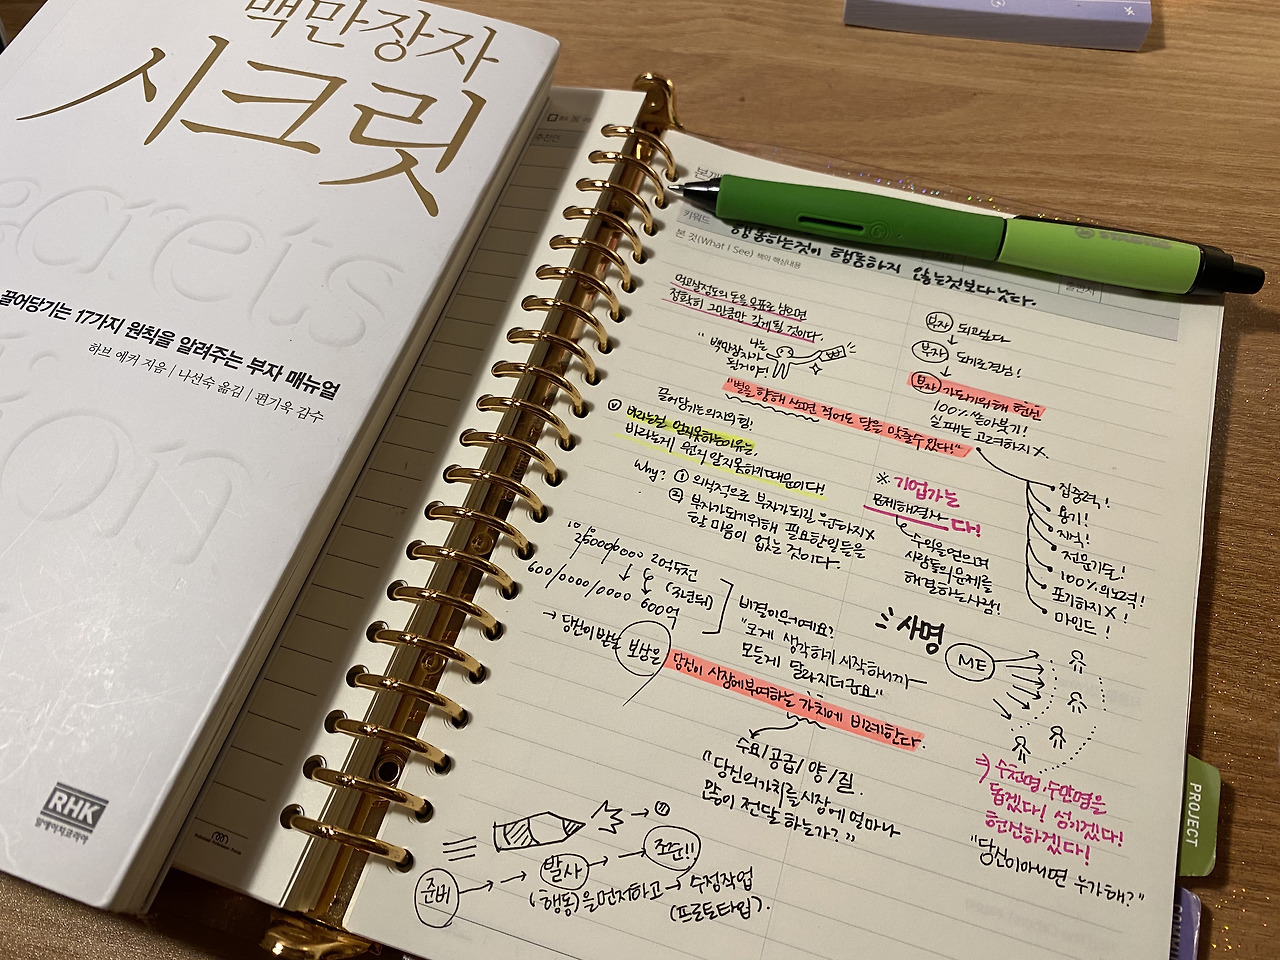 백만장자
시크릿
끌어당기는 17가지 원칙을 알려주는 부자 매뉴얼
하브 에커 지음 | 나선숙 옮김 | 편기욱 감수
RHK
알에이치코리아
추천인
키워드
본 것(What I See) 책의 핵심내용
행동하는것이 행동하지 않는것보다 낫다.
먹고살정도의 돈을 목표로 삼으면
정확히 그만큼만 갖게될 것이다.
"나는
백만장자가
될거야!"
"별을 향해 쏘면 적어도 달을 맞출수있다!"
끌어당기는의지의힘!
바라는걸 얻지못하는이유는,
바라는게 뭔지 알지못하기때문이다!
Why? ① 의식적으로 부자가되길 원하지X
② 부자가되기위해 필요한일들을
할 마음이 없는 것이다.
10%
2억5천
(3년뒤)
600/0000/0000 600억
비결이뭐예요?
"크게 생각하기 시작하니까
모든게 달라지더군요"
→ 당신이받는 보상은 당신이 시장에부여하는 가치에 비례한다.
수요/공급/양/질
"당신의가치를시장에 얼마나
많이 전달하는가?"
준비 → → 발사 → → 조준!!
(행동)을먼저하고 → 수정작업
(프로토타입).
부자 되고싶다
부자 되기로결심!
부자 가되기위해 헌신
100% 쏟아붓기!
실패는 고려하지X.
집중력!
용기!
지식!
전문기술!
100%의노력!
포기하지X!
마인드!
※ 기업가는
문제해결사다!
수익을얻으며
사람들의문제를
해결하는사람!
사명
ME
⇒ 수천명,수만명을
돕겠다! 섬기겠다!
헌신하겠다!
"당신이아니면 누가해?"
PROJECT